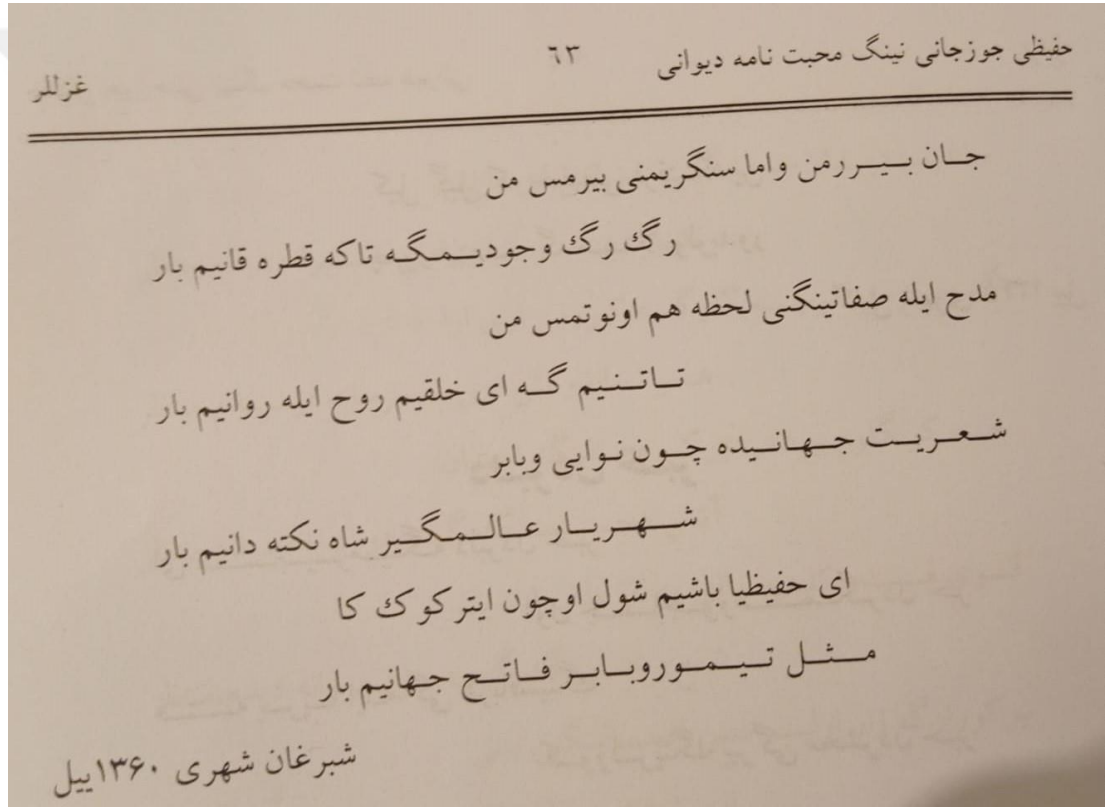 حفیظی جوزجانی نینگ محبت نامه دیوانی ٦٣ غزللر
جان بیررمن واما سنگریمنی بیرمس من
رگ رگ وجودیمگه تاکه قطره قانیم بار
مدح ایله صفاتینگنی لحظه هم اونوتمس من
تاتنیم گه ای خلقیم روح ایله روانیم بار
شعریت جهانیده چون نوایی وبابر
شهریار عالمگیر شاه نکته دانیم بار
ای حفیظیا باشیم شول اوچون ایتر کوک کا
مثل تیموروبابر فاتح جهانیم بار
شبرغان شهری ۱۳۶۰ییل